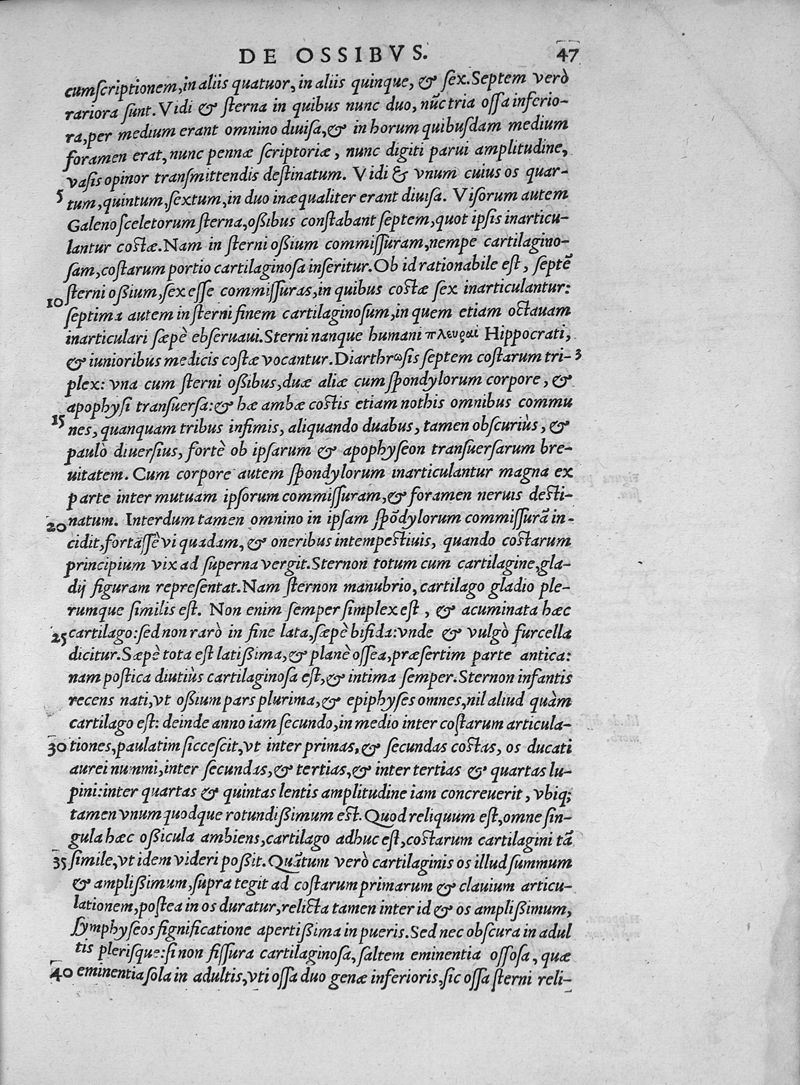 DE OSSIBVS. 47
cumscriptionem, in aliis quatuor, in aliis quinque, & sex. Septem verò
rariora sunt. Vidi & sterna in quibus nunc duo, nūc tria ossa inferio-
ra, per medium erant omnino diuisa, & in horum quibusdam medium
foramen erat, nunc pennæ scriptoriæ, nunc digiti parui amplitudine,
vasis opinor transmittendis destinatum. Vidi & vnum cuius os quar-
5 tum, quintum, sextum, in duo inæqualiter erant diuisa. Visorum autem
Galeno sceletorum sterna, oßibus constabant septem, quot ipsis inarticu-
lantur costæ. Nam in sterni oßium commissuram, nempe cartilagino-
sam, costarum portio cartilaginosa inseritur. Ob id rationabile est, septē
10 sterni oßium, sex esse commissuras, in quibus costæ sex inarticulantur:
septima autem in sterni finem cartilaginosum, in quem etiam octauam
inarticulari sæpè ebseruaui. Sterni nanque humani πλευραὶ Hippocrati,
& iunioribus medicis costæ vocantur. Diarthrωsis septem costarum tri- 3
plex: vna cum sterni oßibus, duæ aliæ cum spondylorum corpore, &
apophysi transuersa: & hæ ambæ costis etiam nothis omnibus commu
15 nes, quanquam tribus infimis, aliquando duabus, tamen obscuriùs, &
paulò diuersius, fortè ob ipsarum & apophyseon transuersarum bre-
uitatem. Cum corpore autem spondylorum inarticulantur magna ex
parte inter mutuam ipsorum commissuram, & foramen neruis desti-
20 natum. Interdum tamen omnino in ipsam spōdylorum commissurā in-
cidit, fortaßè vi quadam, & oneribus intempestiuis, quando costarum
principium vix ad superna vergit. Sternon totum cum cartilagine, gla-
dij figuram repræsentat. Nam sternon manubrio, cartilago gladio ple-
rumque similis est. Non enim semper simplex est, & acuminata hæc
25 cartilago: sed non rarò in fine lata, sæpè bifida: vnde & vulgò furcella
dicitur. Sæpè tota est latißima, & planè ossea, præsertim parte antica:
nam postica diutiùs cartilaginosa est, & intima semper. Sternon infantis
recens nati, vt oßium pars plurima, & epiphyses omnes, nil aliud quàm
cartilago est: deinde anno iam secundo, in medio inter costarum articula-
30 tiones, paulatim siccescit, vt inter primas, & secundas costas, os ducati
aurei nummi, inter secundas, & tertias, & inter tertias & quartas lu-
pini: inter quartas & quintas lentis amplitudine iam concreuerit, vbiq;
tamen vnumquodque rotundißimum est. Quod reliquum est, omne sin-
gula hæc oßicula ambiens, cartilago adhuc est, costarum cartilagini tā
35 simile, vt idem videri poßit. Quātum verò cartilaginis os illud summum
& amplißimum, supra tegit ad costarum primarum & clauium articu-
lationem, postea in os duratur, relicta tamen inter id & os amplißimum,
symphyseos significatione apertißima in pueris. Sed nec obscura in adul
tis plerisque: si non fissura cartilaginosa, saltem eminentia ossosa, quæ
40 eminentia sola in adultis, vti ossa duo genæ inferioris, sic ossa sterni reli-